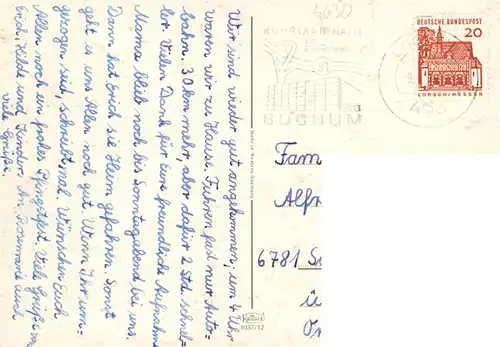 4630
RUHRLANDHALLE
BOCHUM
DEUTSCHE BUNDESPOST
20
LORSCH/HESSEN
Wir sind wieder gut angekommen, um 4 Uhr
waren wir zu Hause. Fuhren fast nur Auto-
bahn. 30 klm mehr, aber dafür 2 Std. schnel-
ler. Vielen Dank für Eure freundliche Aufnahme
Mama blieb noch bis Sonntagabend bei uns.
Dann hat Erich sie Heim gefahren. Sonst
geht es uns Allen noch gut. Wenn Ihr um-
gezogen seid, schreibt mal. Wünschen Euch
Allen noch ein frohes Pfingstfest. Viele Grüße von
Erich, Hilde und Kinder. An Rosemarie auch
viele Grüße.
Fam
Alfr
6781
ü
1037/12